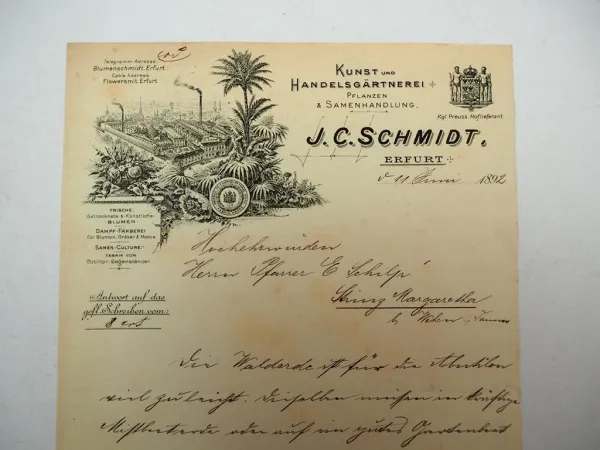 Telegramm-Adresse:
Blumenschmidt, Erfurt
Cable Address:
Flowersmit, Erfurt
KUNST UND
HANDELSGÄRTNEREI
PFLANZEN
& SAMENHANDLUNG.
Kgl. Preuss. Hoflieferant
J.C. SCHMIDT,
ERFURT
d 11 Juni 1892
FRISCHE,
Getrocknete & Künstliche
BLUMEN
DAMPF-FÄRBEREI
für Blumen, Gräser & Moose
SAMEN-CULTURE
FABRIK VON
Mobiliar-Gegenständen
Hochehrwürden
Herrn Pfarrer E Schilp
Margaretha
b/
Antwort auf das
gefl. Schreiben vom:
8 crt
Die Walderde ist für die Abutilon
viel zu leicht. Dieselben müssen in kräftige
Mistbeeterde oder auf ein gutes Gartenbeet